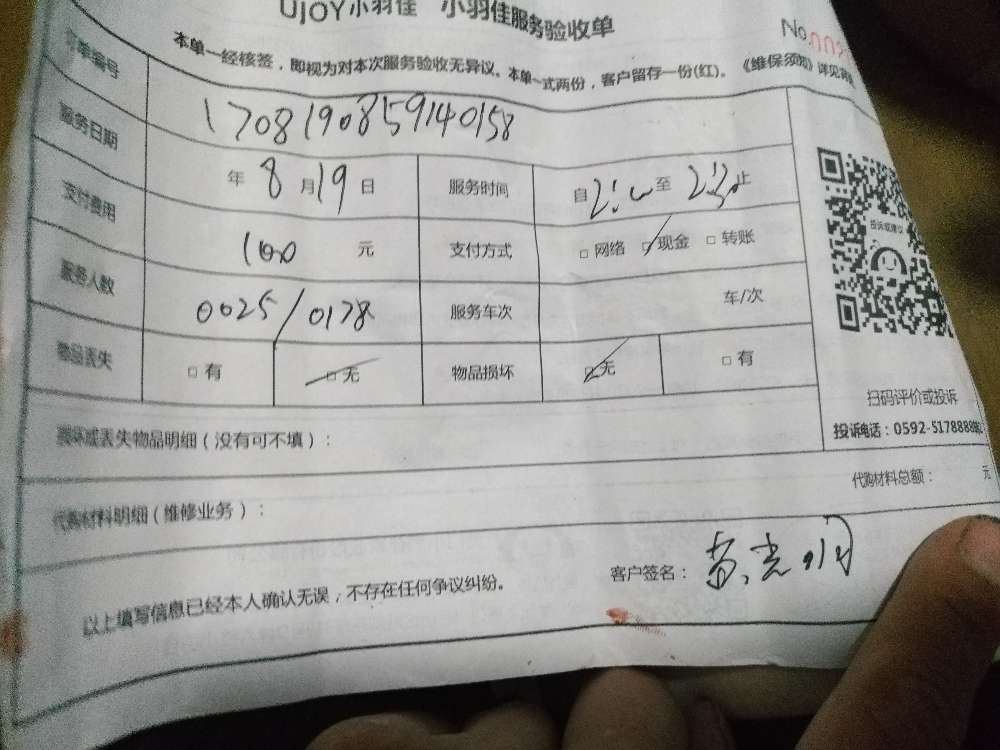 UJOY小羽佳 小羽佳服务验收单
No.
本单一经核签，即视为对本次服务验收无异议。本单一式两份，客户留存一份(红)。《维保须知》详见
订单编号 1708190859140158
服务日期 年 8 月 19 日 服务时间 自 至 止
支付费用 100 元 支付方式 □ 网络 □ 现金 □ 转账
服务人数 0025/0178 服务车次 车/次
物品丢失 □ 有 □ 无 物品损坏 □ 无 □ 有
投诉或建议
扫码评价或投诉
投诉电话：0592-5178888
损坏或丢失物品明细（没有可不填）：
代购材料明细（维修业务）： 代购材料总额： 元
以上填写信息已经本人确认无误，不存在任何争议纠纷。 客户签名：